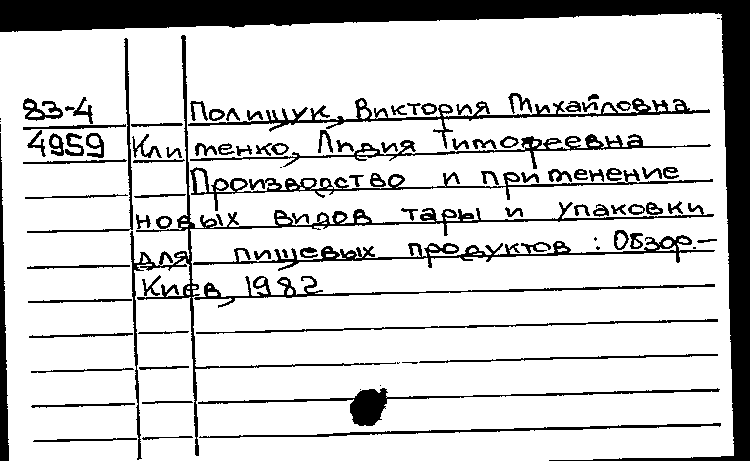 83-4 Полищук, Виктория Михайловна
4959 Клименко, Лидия Тимофеевна
Производство и применение
новых видов тары и упаковки
для пищевых продуктов : Обзор.—
Киев, 1982